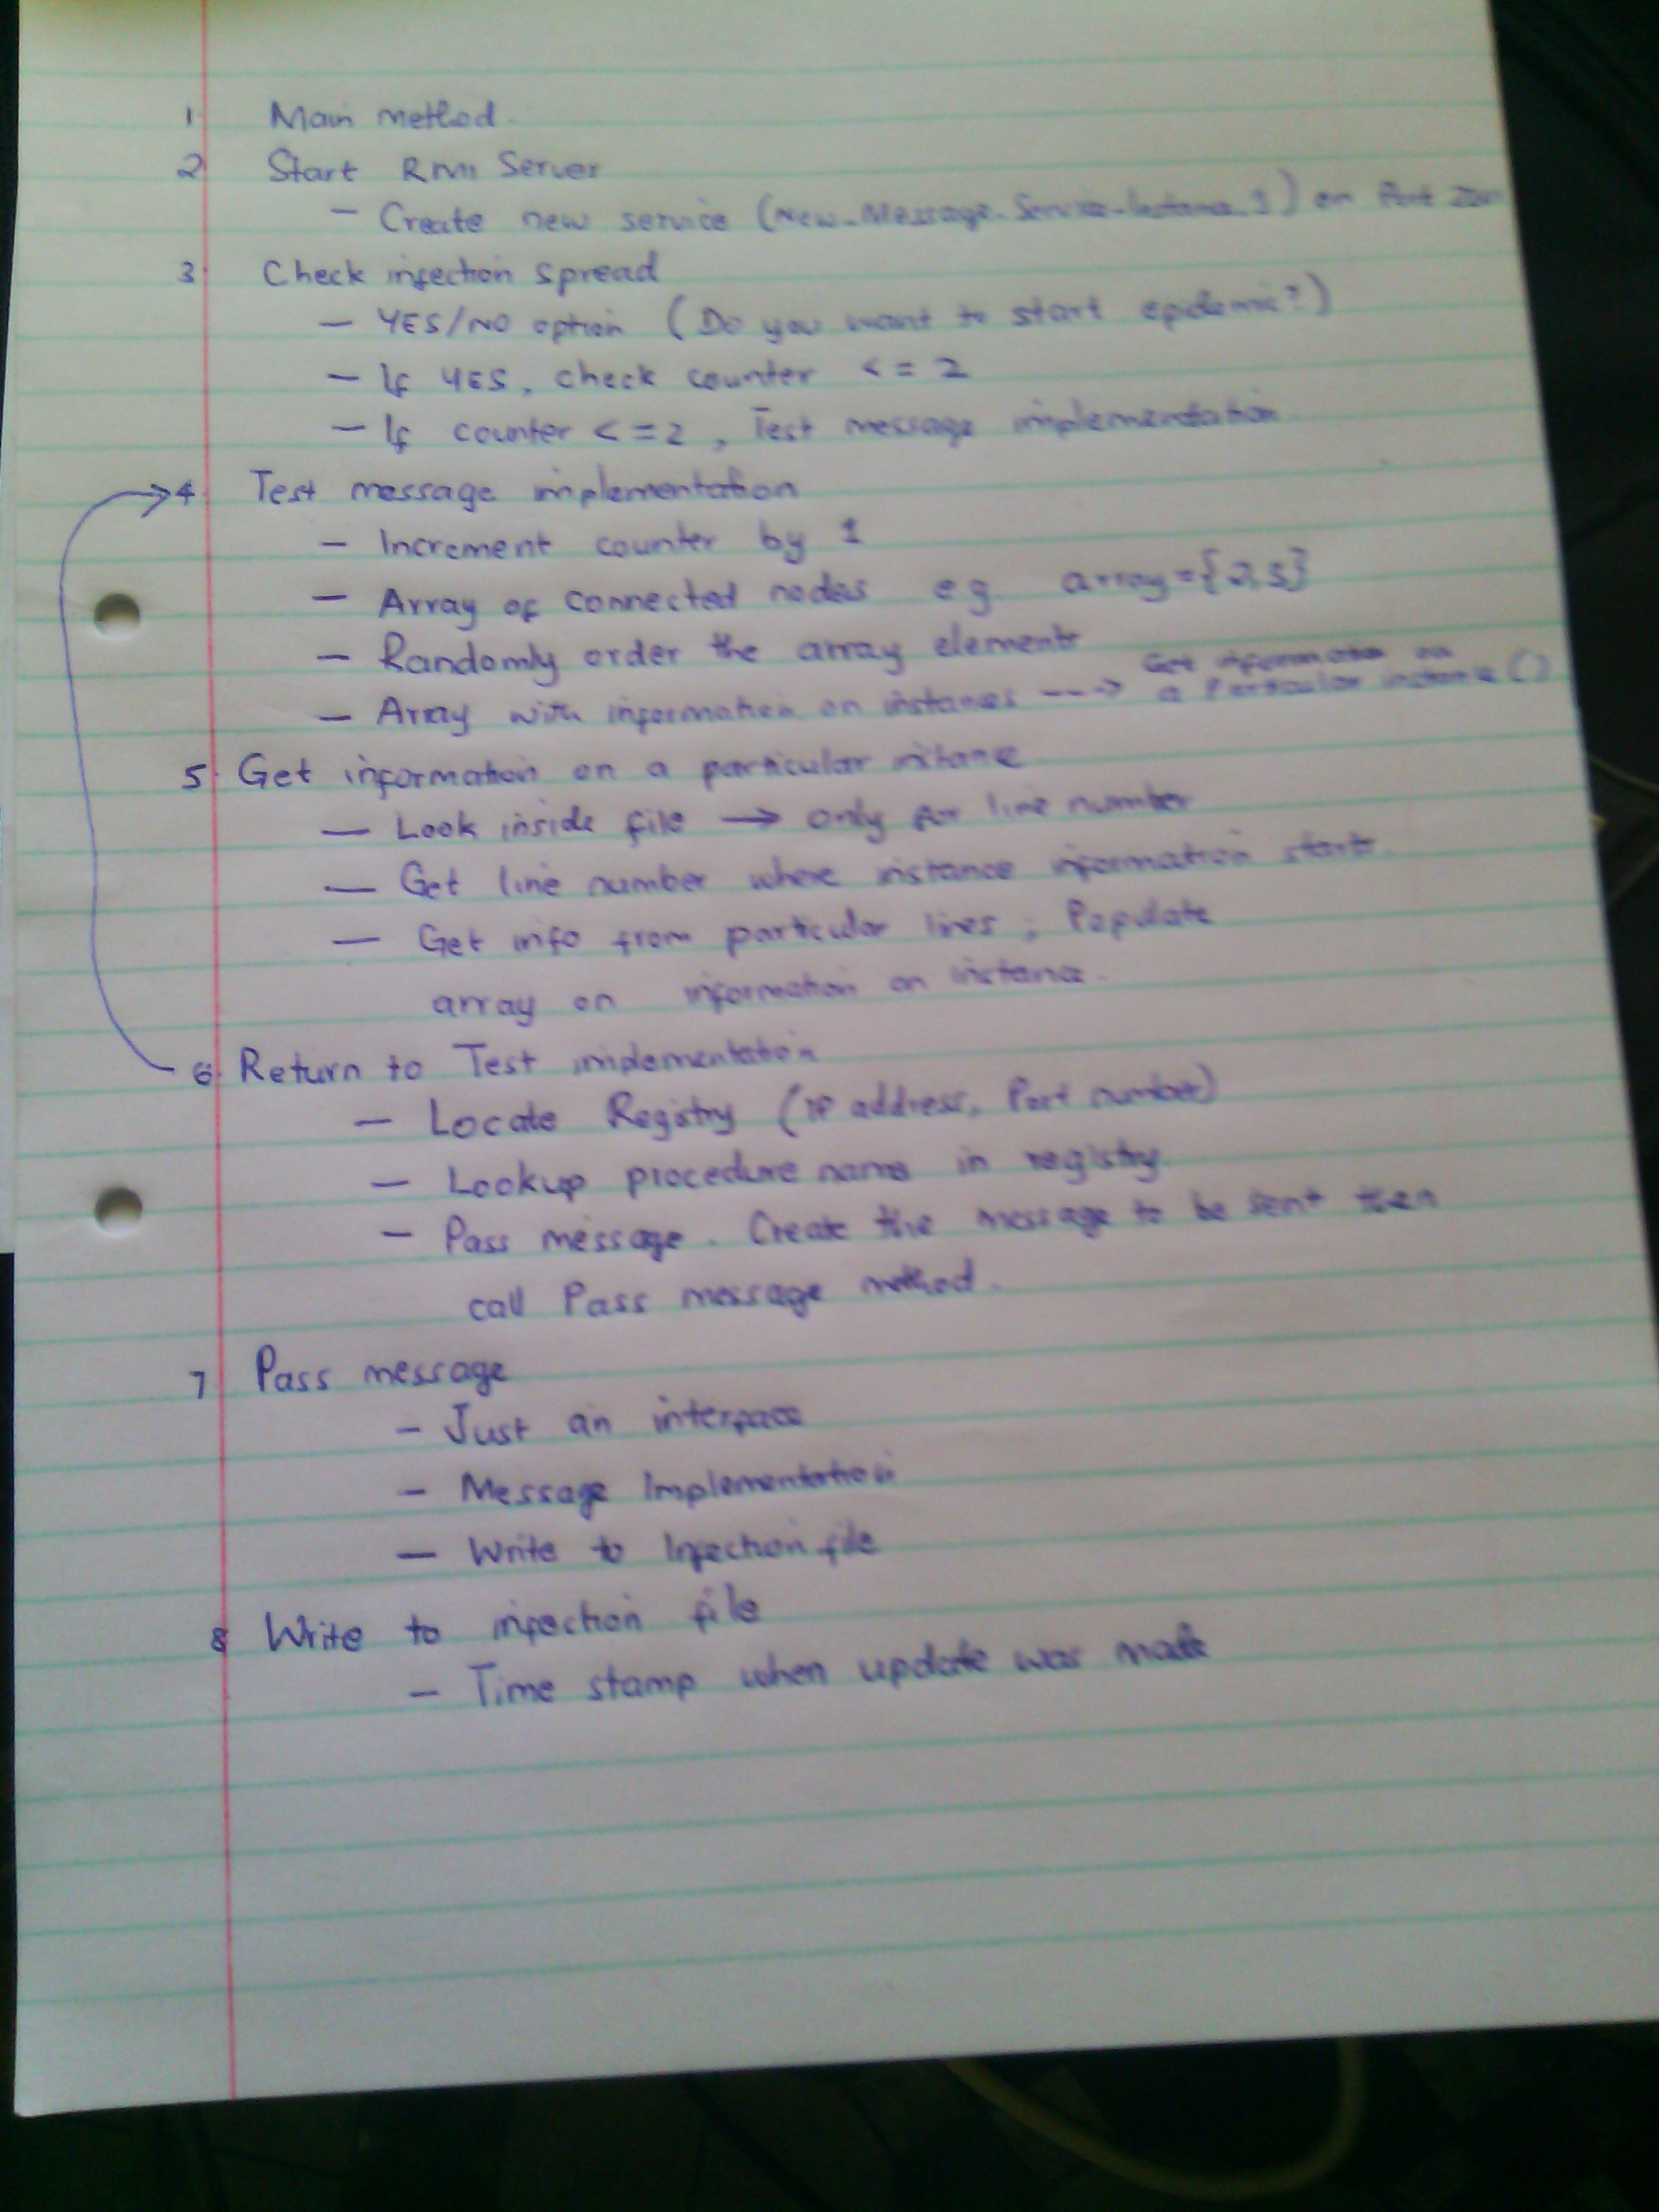 1 Main method.
2 Start RMI Server
— Create new service (New_Message_Service_Instance_1) on Port
3 Check infection spread
— YES/NO option (Do you want to start epidemic?)
— If YES, check counter <= 2
— If counter <= 2, Test message implementation
4 Test message implementation
— Increment counter by 1
— Array of connected nodes eg array = {2,5}
— Randomly order the array elements
— Array with information on instances ---> Get information on a Particular instance ()
5 Get information on a particular instance
— Look inside file → only for line number
— Get line number where instance information starts.
— Get info from particular lines, Populate
array on information on instance.
6 Return to Test implementation
— Locate Registry (IP address, Port number)
— Lookup procedure name in registry.
— Pass message. Create the message to be sent then
call Pass message method.
7 Pass message
— Just an interface
— Message Implementation
— Write to Infection file
8 Write to infection file
— Time stamp when update was made